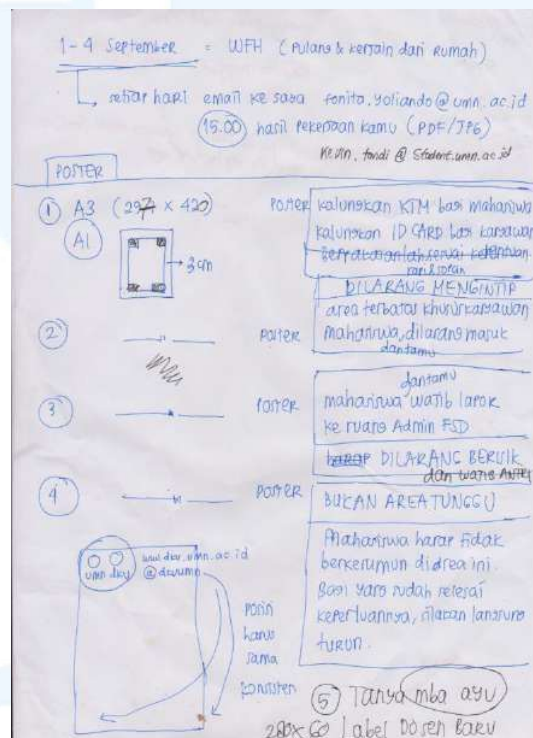 1-4 September = WFH (Pulang & kerjain dari Rumah)
setiap hari email ke saya fonita.yoliando@umn.ac.id
15.00 hasil pekerjaan kamu (PDF/JPG)
kevin.tandi@student.umn.ac.id
POSTER
1 A3 (297 x 420) POSTER
A1
3cm
kalungkan KTM bagi mahasiswa
kalungkan ID CARD bagi karyawan
DILARANG MENGINTIP
area terbatas khusus karyawan
mahasiswa, dilarang masuk
dan tamu
2 POSTER
dan tamu
mahasiswa wajib lapor
ke ruang Admin FSD
3 POSTER
DILARANG BERISIK
dan wajib ANTRI
4 POSTER
BUKAN AREA TUNGGU
Mahasiswa harap tidak
berkerumun di area ini.
Bagi yang sudah selesai
keperluannya, silakan langsung
turun.
umn dkv
www.dkv.umn.ac.id
@dkvumn
posisi
harus
sama
konsisten
5 Tanya mba ayu
280x60 Label Dosen Baru